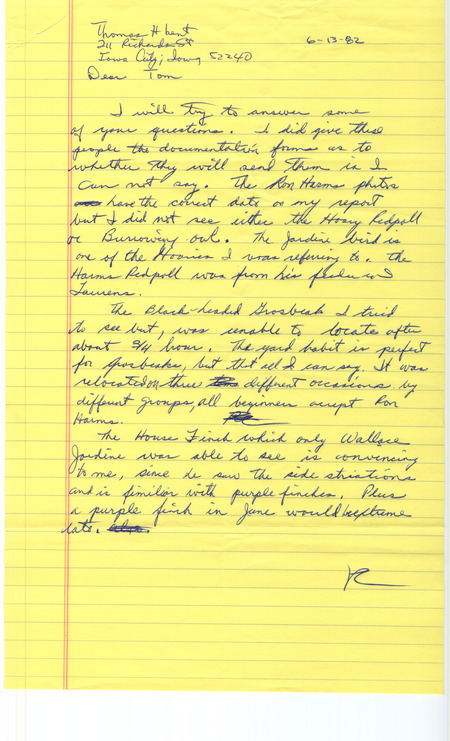 Thomas H Kent
211 Richards St 6-13-82
Iowa City, Iowa 52240
Dear Tom
I will try to answer some
of your questions. I did give these
people the documentation forms as to
whether they will send them in I
can not say. The Ron Harms photos
have the correct date on my report
but I did not see either the Hoary Redpoll
or Burrowing owl. The Jardine bird is
one of the Hoaries I was refering to. The
Harms Redpoll was from his feeder in
Laurens.
The Black-headed Grosbeak I tried
to see but, was unable to locate after
about 3/4 hour. The yard habit is perfect
for grosbeaks, but that all I can say. It was
relocated on three different occasions by
different groups, all beginners accept Ron
Harms.
The House Finch which only Wallace
Jardine was able to see is convincing
to me, since he saw the side striations
and is fimiliar with purple finches. Plus
a purple finch in June would be extreme
late.